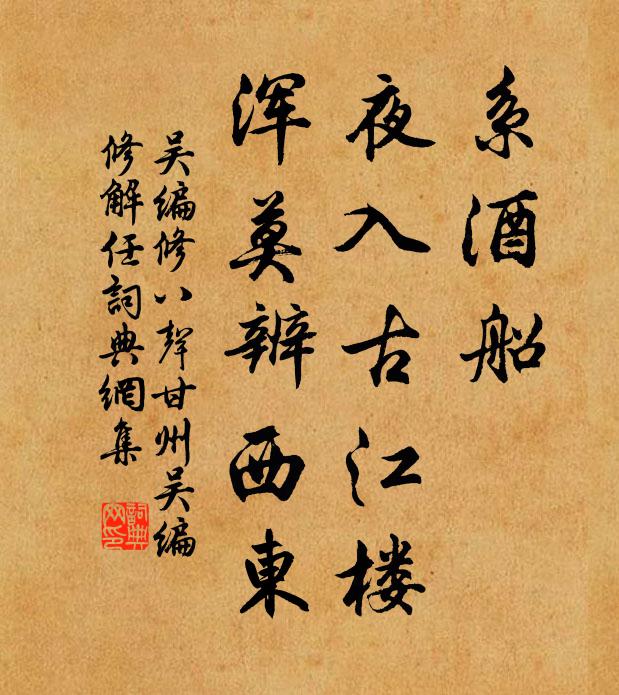 系酒船
夜入古江楼
浑莫辨西東
吴编修八聲甘州吴编
修解任詞典網集
詞典
网印